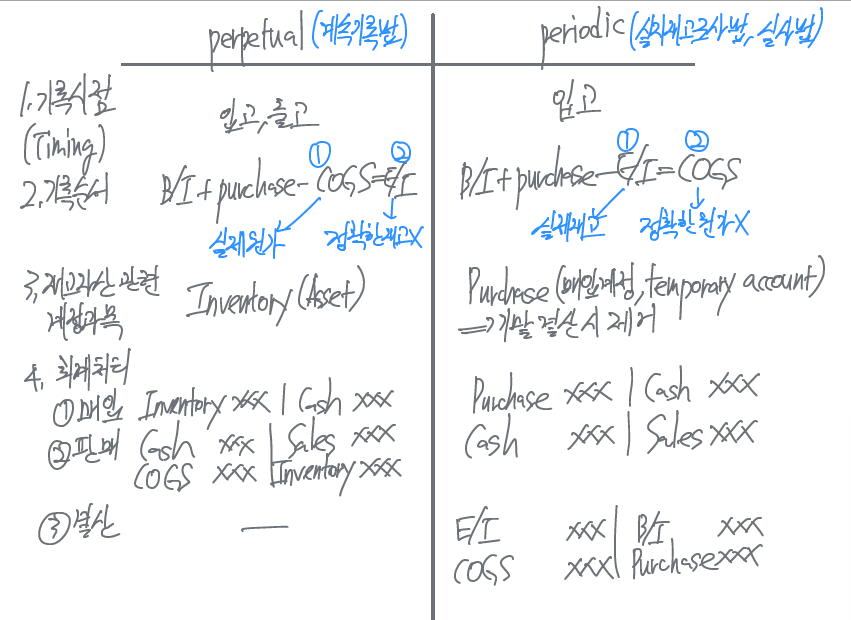 perpetual (계속기록법)
periodic (실지재고조사법, 실사법)
1. 기록시점
(Timing)
입고, 출고
입고
2. 기록순서
① ②
B/I + purchase - COGS = E/I
실제원가 정확한재고X
① ②
B/I + purchase - E/I = COGS
실제재고 정확한 원가X
3. 재고자산 관련
계정과목
Inventory (Asset)
Purchase (매입계정, temporary account)
⇒ 기말 결산시 제거
4. 회계처리
① 매입 Inventory xxx | Cash xxx
Purchase xxx | Cash xxx
② 판매 Cash xxx | Sales xxx
COGS xxx | Inventory xxx
Cash xxx | Sales xxx
③ 결산 —
E/I xxx | B/I xxx
COGS xxx | Purchase xxx